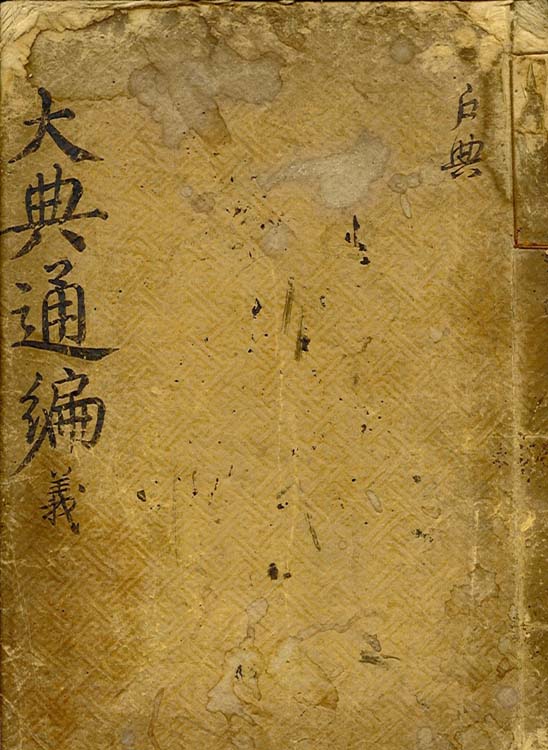 戶典
大典通編 義